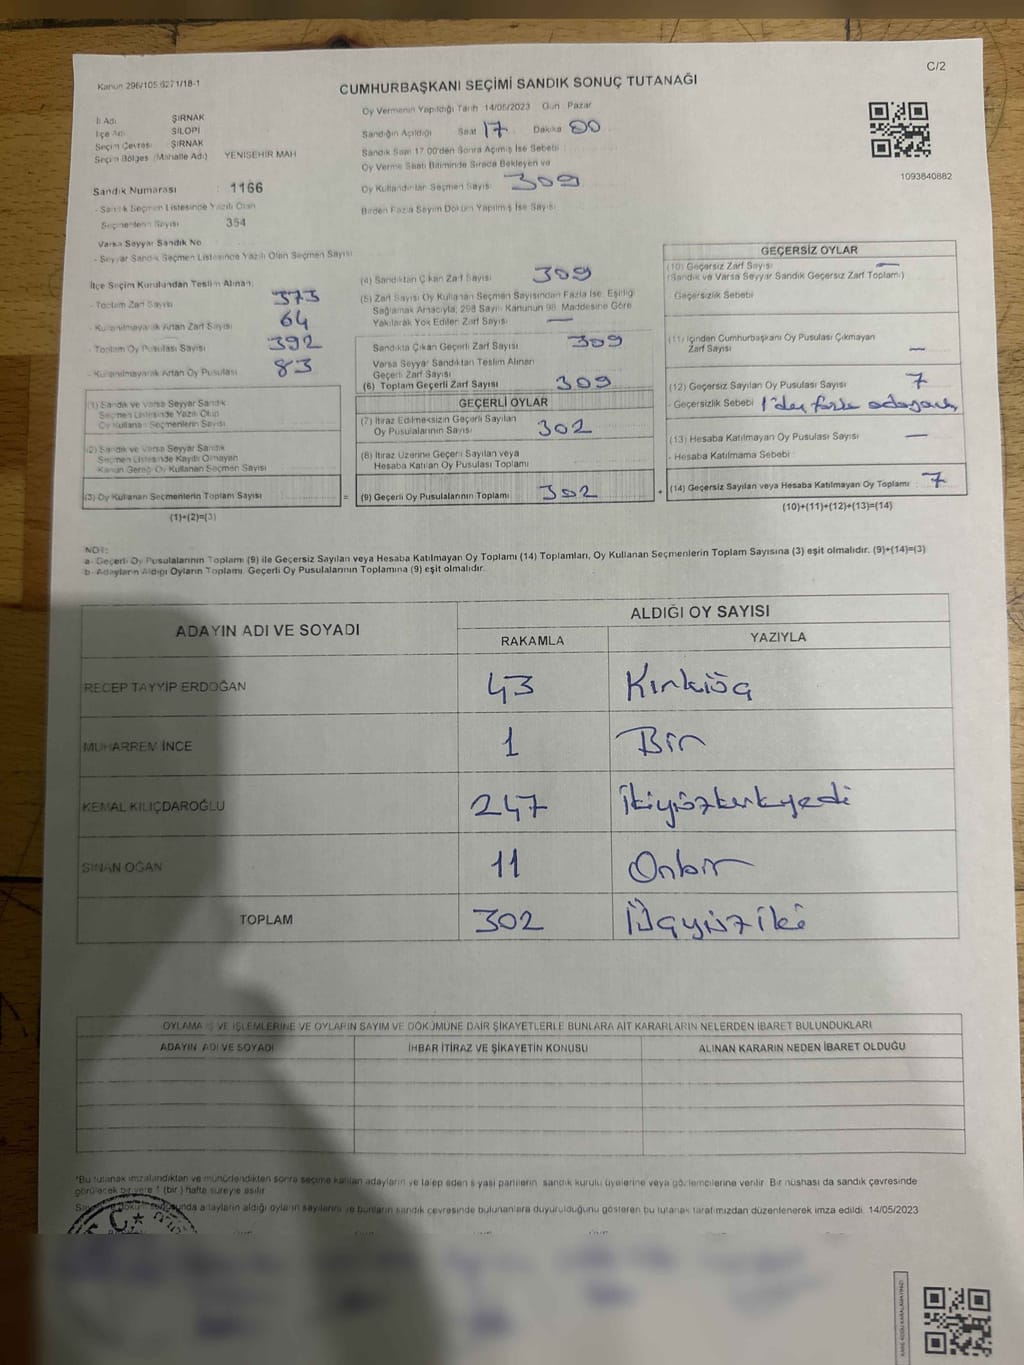 C/2
Kanun 296/105 6271/18-1
CUMHURBAŞKANI SEÇİMİ SANDIK SONUÇ TUTANAĞI
İl Adı ŞIRNAK
İlçe Adı SİLOPİ
Seçim Çevresi ŞIRNAK
Seçim Bölgesi (Mahalle Adı) YENİŞEHİR MAH
Sandık Numarası : 1166
- Sandık Seçmen Listesinde Yazılı Olan
Seçmenlerin Sayısı 354
Varsa Seyyar Sandık No
- Seyyar Sandık Seçmen Listesinde Yazılı Olan Seçmen Sayısı
İlçe Seçim Kurulundan Teslim Alınan:
- Toplam Zarf Sayısı 373
- Kullanılmayarak Artan Zarf Sayısı 64
- Toplam Oy Pusulası Sayısı 392
- Kullanılmayarak Artan Oy Pusulası 83
(1) Sandık ve Varsa Seyyar Sandık
Seçmen Listesinde Yazılı Olup
Oy Kullanan Seçmenlerin Sayısı
(2) Sandık ve Varsa Seyyar Sandık
Seçmen Listesinde Kayıtlı Olmayan
Kanun Gereği Oy Kullanan Seçmen Sayısı
(3) Oy Kullanan Seçmenlerin Toplam Sayısı =
(1)+(2)=(3)
Oy Vermenin Yapıldığı Tarih 14/05/2023 Gün Pazar
Sandığın Açıldığı Saat 17 Dakika 00
Sandık Saat 17.00'den Sonra Açılmış İse Sebebi :
Oy Verme Saati Bitiminde Sırada Bekleyen ve
Oy Kullandırılan Seçmen Sayısı 309
Birden Fazla Sayım Döküm Yapılmış İse Sayısı
(4) Sandıktan Çıkan Zarf Sayısı 309
(5) Zarf Sayısı Oy Kullanan Seçmen Sayısından Fazla İse, Eşitliği
Sağlamak Amacıyla, 298 Sayılı Kanunun 98. Maddesine Göre
Yakılarak Yok Edilen Zarf Sayısı —
Sandıkta Çıkan Geçerli Zarf Sayısı 309
Varsa Seyyar Sandıktan Teslim Alınan
Geçerli Zarf Sayısı
(6) Toplam Geçerli Zarf Sayısı 309
GEÇERLİ OYLAR
(7) İtiraz Edilmeksizin Geçerli Sayılan
Oy Pusulalarının Sayısı 302
(8) İtiraz Üzerine Geçerli Sayılan veya
Hesaba Katılan Oy Pusulası Toplamı
(9) Geçerli Oy Pusulalarının Toplamı 302 +
1093840882
GEÇERSİZ OYLAR
(10) Geçersiz Zarf Sayısı —
(Sandık ve Varsa Seyyar Sandık Geçersiz Zarf Toplamı)
Geçersizlik Sebebi
(11) İçinden Cumhurbaşkanı Oy Pusulası Çıkmayan
Zarf Sayısı —
(12) Geçersiz Sayılan Oy Pusulası Sayısı 7
- Geçersizlik Sebebi 1'den fazla
(13) Hesaba Katılmayan Oy Pusulası Sayısı —
- Hesaba Katılmama Sebebi
(14) Geçersiz Sayılan veya Hesaba Katılmayan Oy Toplamı : 7
(10)+(11)+(12)+(13)=(14)
NOT:
a- Geçerli Oy Pusulalarının Toplamı (9) ile Geçersiz Sayılan veya Hesaba Katılmayan Oy Toplamı (14) Toplamları, Oy Kullanan Seçmenlerin Toplam Sayısına (3) eşit olmalıdır. (9)+(14)=(3)
b- Adayların Aldığı Oyların Toplamı, Geçerli Oy Pusulalarının Toplamına (9) eşit olmalıdır.
ADAYIN ADI VE SOYADI ALDIĞI OY SAYISI
RAKAMLA YAZIYLA
RECEP TAYYİP ERDOĞAN 43 Kırküç
MUHARREM İNCE 1 Bir
KEMAL KILIÇDAROĞLU 247 İkiyüzkırkyedi
SİNAN OĞAN 11 Onbir
TOPLAM 302 Üçyüziki
OYLAMA İŞ VE İŞLEMLERİNE VE OYLARIN SAYIM VE DÖKÜMÜNE DAİR ŞİKAYETLERLE BUNLARA AİT KARARLARIN NELERDEN İBARET BULUNDUKLARI
ADAYIN ADI VE SOYADI İHBAR İTİRAZ VE ŞİKAYETİN KONUSU ALINAN KARARIN NEDEN İBARET OLDUĞU
*Bu tutanak imzalandıktan ve mühürlendikten sonra seçime katılan adayların ve talep eden siyasi partilerin, sandık kurulu üyelerine veya gözlemcilerine verilir. Bir nüshası da sandık çevresinde
görülecek bir yere 1 (bir) hafta süreyle asılır.
adayların aldığı oyların sayılarını ve bunların sandık çevresinde bulunanlara duyurulduğunu gösteren bu tutanak tarafımızdan düzenlenerek imza edildi. 14/05/2023
T.C.